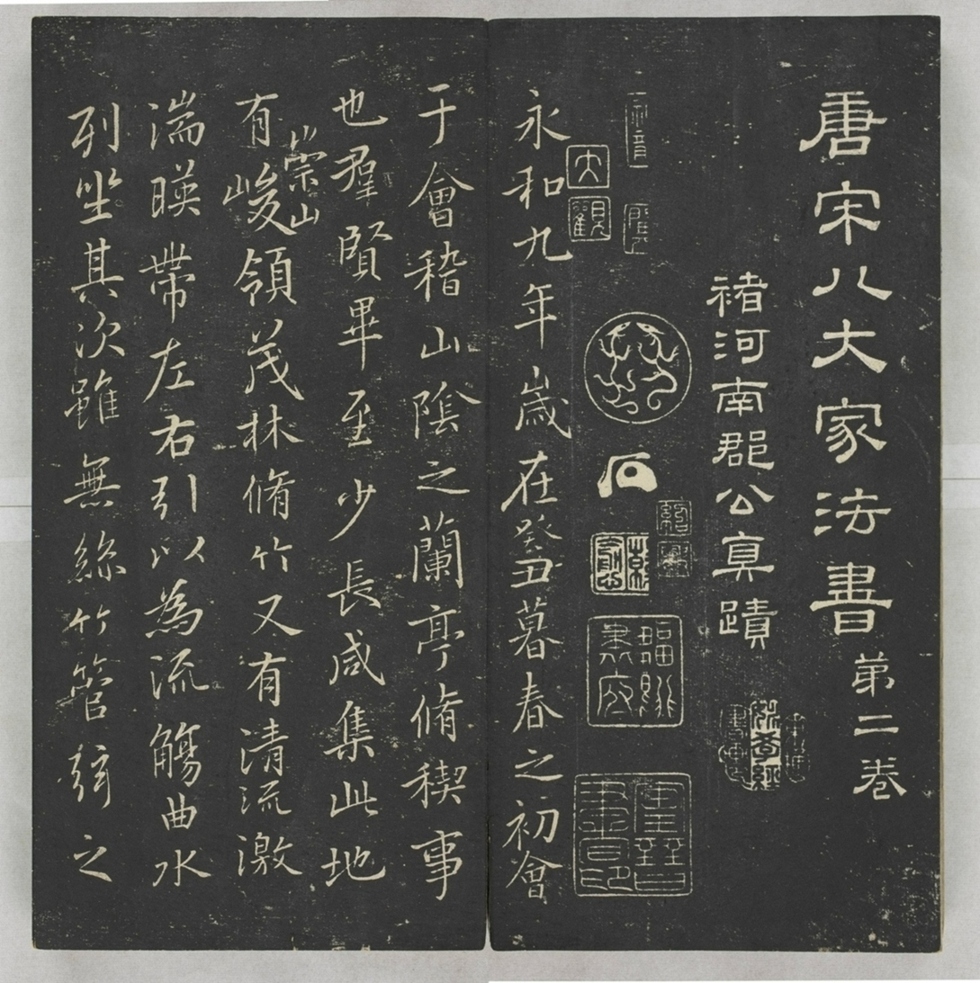 唐宋八大家法書第二卷
褚河南郡公真蹟
大觀
永和九年歲在癸丑暮春之初會
于會稽山陰之蘭亭脩稧事
也羣賢畢至少長咸集此地
有崇山峻領茂林脩竹又有清流激
湍暎帶左右引以為流觴曲水
列坐其次雖無絲竹管弦之